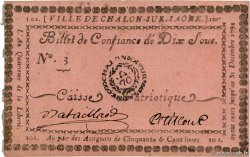 10s. VILLE DE CHALON-SUR-SAONE. 10s.
Billet de Confiance de Dix Sous.
N°. 3
Caisse Patriotique
Bataillard
10 s. Au pair des Assignats de Cinquante & Cent livres. 10 s.
L'An Quatrieme de la Liberté.
31 Décembre 1792